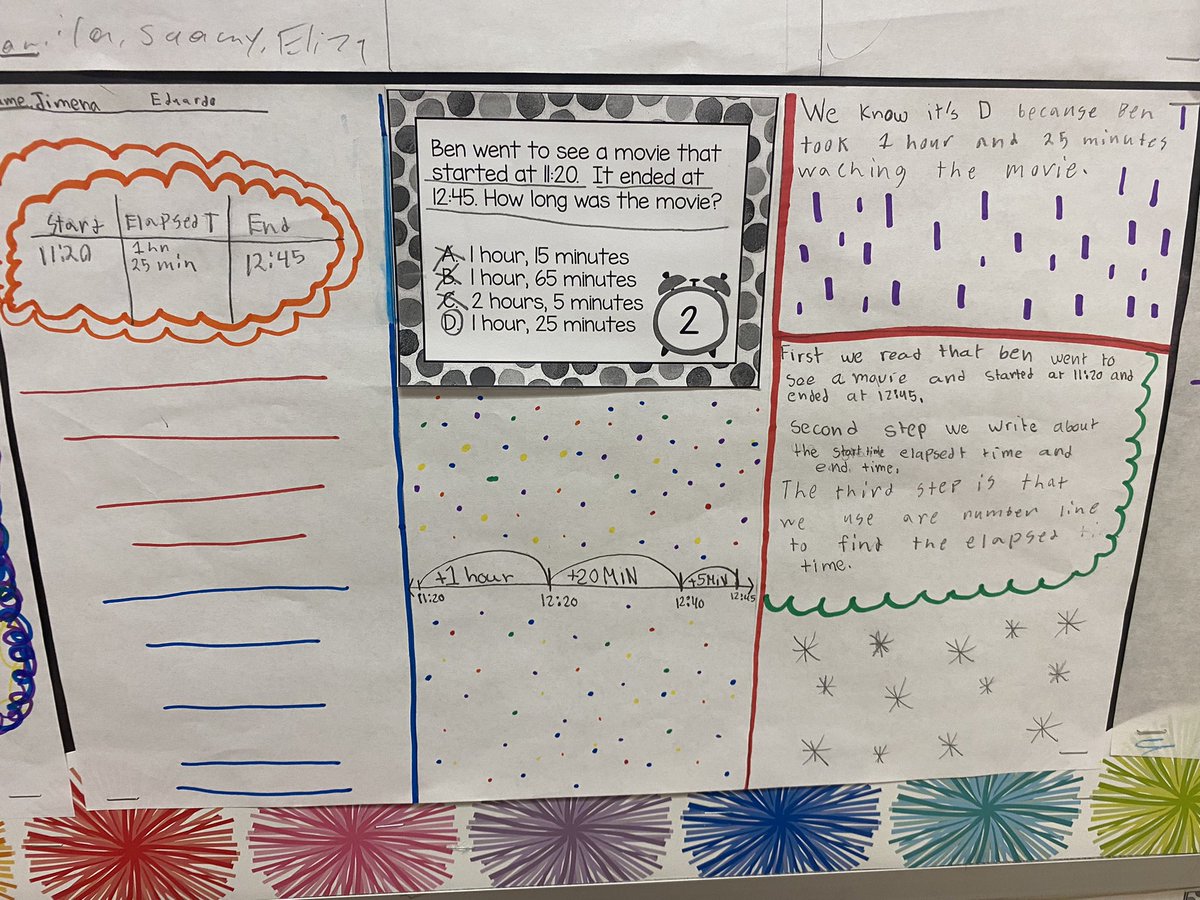 Saamy, Eliza
ame. Jimena Eduardo
Start Elapsed T End
11:20 1 hn 12:45
25 min
Ben went to see a movie that
started at 11:20. It ended at
12:45. How long was the movie?
A. 1 hour, 15 minutes
B. 1 hour, 65 minutes
C. 2 hours, 5 minutes
D. 1 hour, 25 minutes
2
+1 hour +20 MIN +5 MIN
11:20 12:20 12:40 12:45
We know it's D becanse Ben
took 1 hour and 25 minutes
waching the movie.
First we read that ben went to
see a movie and started at 11:20 and
ended at 12:45.
Second step we write about
the start time elapsedt time and
end time.
The third step is that
we use are number line
to find the elapsed ti
time.